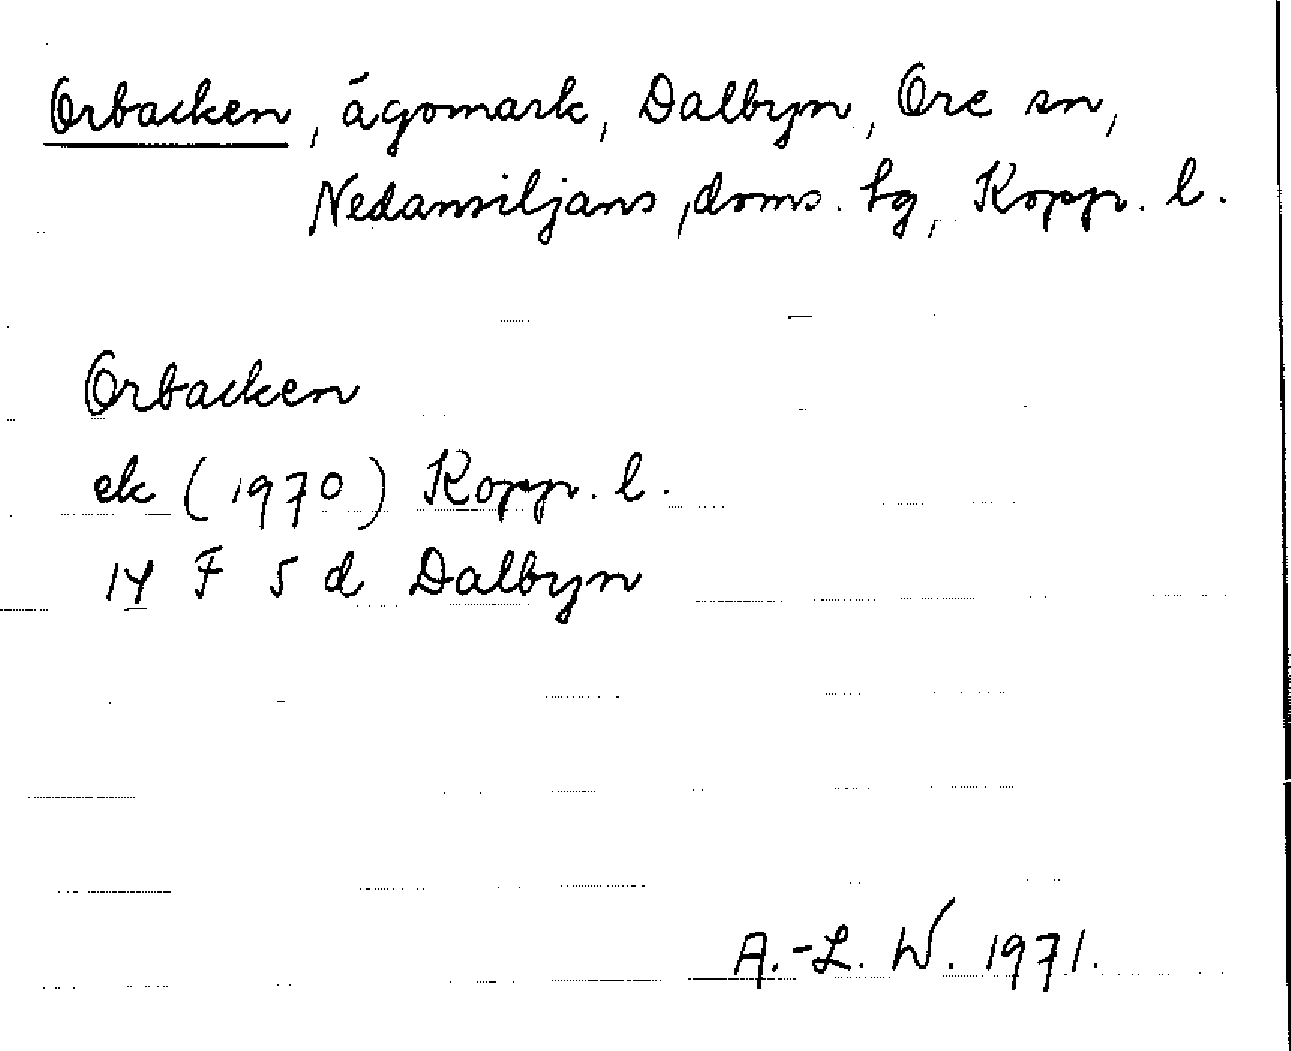 Orbacken, ägomark, Dalbyn, Ore sn,
Nedansiljans, doms. hg, Kopp. l.
Orbacken
ek (1970) Kopp. l.
14 F 5 d Dalbyn
A.-L. W. 1971.